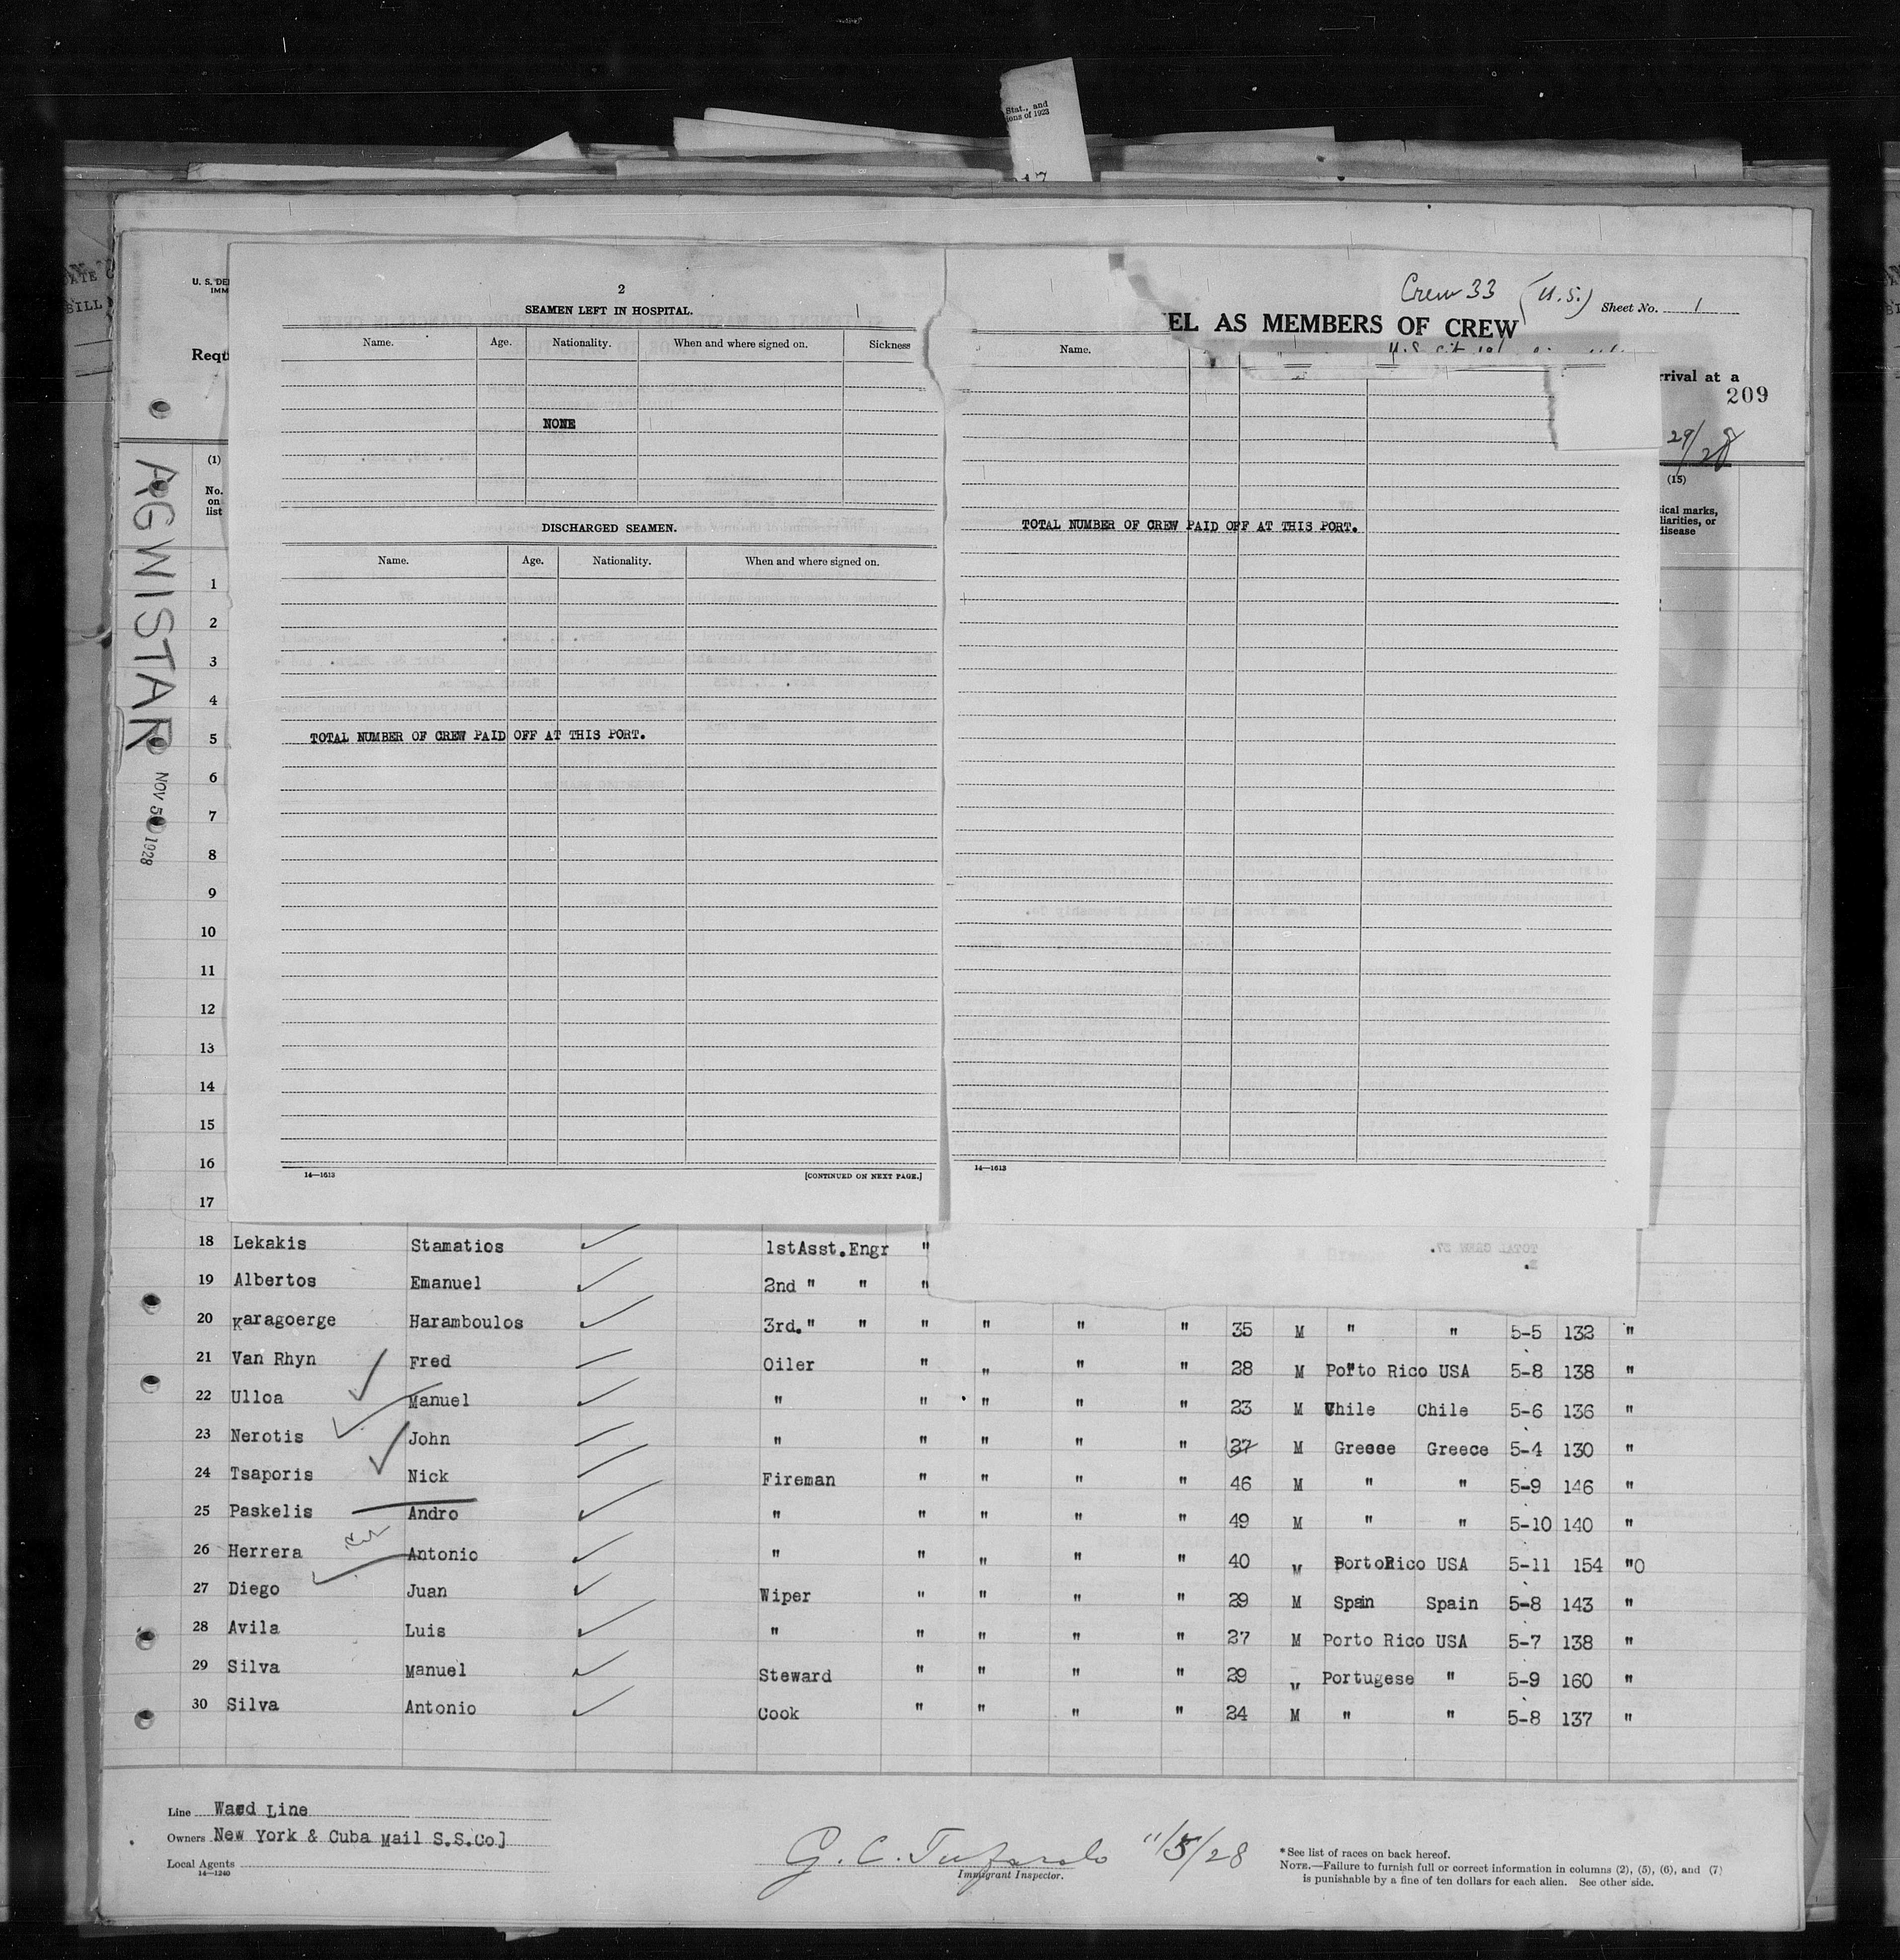 Stat., and
ions of 1923
Crew 33 (U.S.) Sheet No. 1
EL AS MEMBERS OF CREW
U. S. DE
IMM
Requ
rrival at a
209
29/28
(1)
No.
on
list
(15)
ical marks,
liarities, or
disease
AGWISTAR
NOV 5 1928
2
SEAMEN LEFT IN HOSPITAL.
Name. Age. Nationality. When and where signed on. Sickness
NONE
DISCHARGED SEAMEN.
Name. Age. Nationality. When and where signed on.
TOTAL NUMBER OF CREW PAID OFF AT THIS PORT.
14—1613 [CONTINUED ON NEXT PAGE.]
Name.
TOTAL NUMBER OF CREW PAID OFF AT THIS PORT.
14—1613
1
2
3
4
5
6
7
8
9
10
11
12
13
14
15
16
17
18 Lekakis Stamatios 1stAsst.Engr "
19 Albertos Emanuel 2nd " " "
20 Karagoerge Haramboulos 3rd." " " " " " 35 M " " 5-5 132 "
21 Van Rhyn Fred Oiler " " " " 28 M Porto Rico USA 5-8 138 "
22 Ulloa Manuel " " " " " 23 M Chile Chile 5-6 136 "
23 Nerotis John " " " " " 27 M Greece Greece 5-4 130 "
24 Tsaporis Nick Fireman " " " " 46 M " " 5-9 146 "
25 Paskelis Andro " " " " " 49 M " " 5-10 140 "
26 Herrera Antonio " " " " " 40 M PortoRico USA 5-11 154 "0
27 Diego Juan Wiper " " " " 29 M Spain Spain 5-8 143 "
28 Avila Luis " " " " " 27 M Porto Rico USA 5-7 138 "
29 Silva Manuel Steward " " " " 29 M Portugese " 5-9 160 "
30 Silva Antonio Cook " " " " 24 M " " 5-8 137 "
Line Ward Line
Owners New York & Cuba Mail S.S.Co]
Local Agents
14—1240
G. C. 11/5/28
Immigrant Inspector.
*See list of races on back hereof.
NOTE.—Failure to furnish full or correct information in columns (2), (5), (6), and (7)
is punishable by a fine of ten dollars for each alien. See other side.